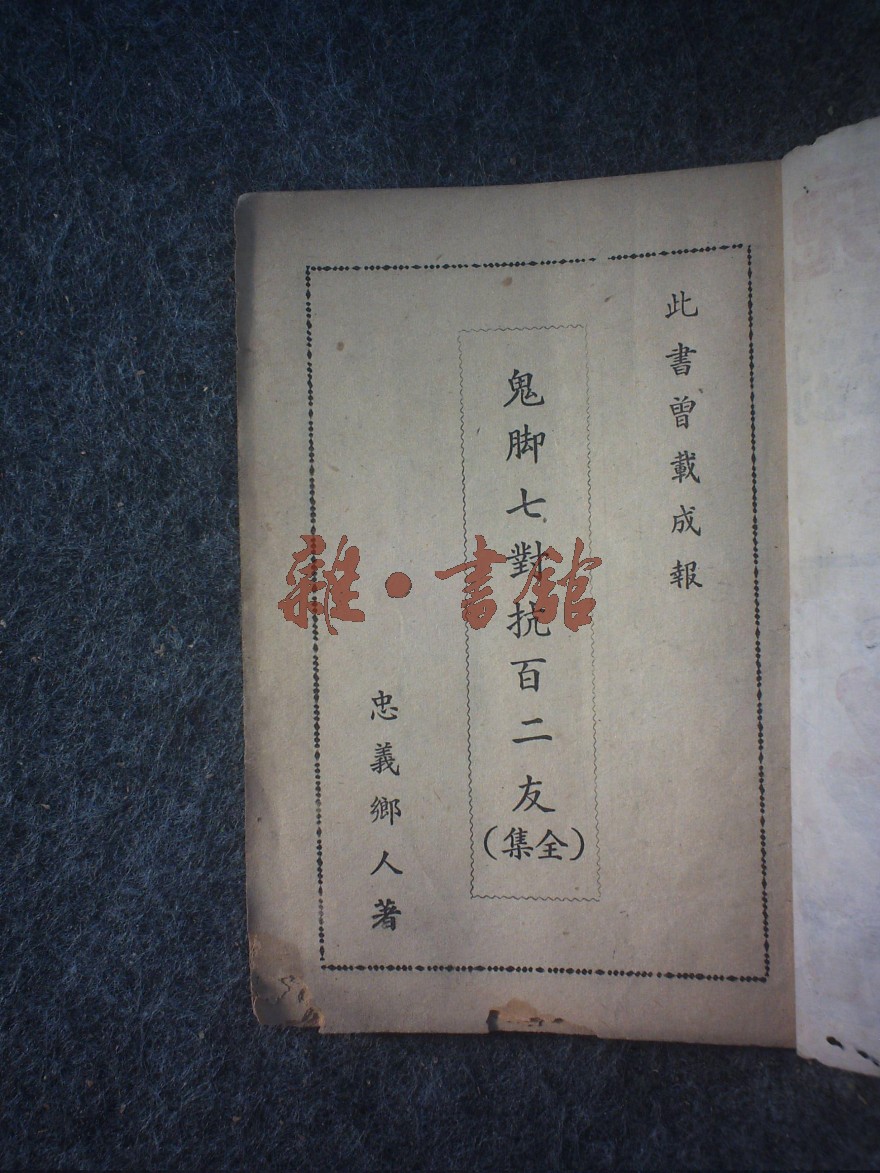 此書曾載成報
鬼脚七對抗百二友
（全集）
忠義鄉人著
雜·書舘